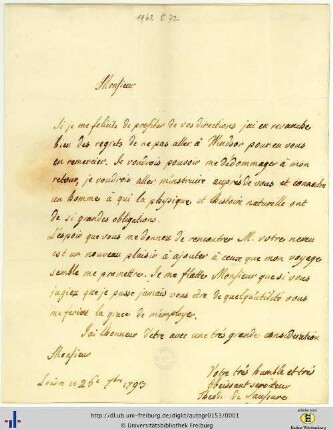 1962 C 72
Monsieur
Si je me felicite de profiter de vos directions j'ai en revanche
bien des regrets de ne pas aller à Windsor pour en vous
en remercier. Je voudrois pouvoir me dedommager à mon
retour, je voudrois aller m'instruire auprès de vous et connoitre
un homme à qui la physique et l'histoire naturelle ont
de si grandes obligations.
L'espoir que vous me donnez de rencontrer M. votre neveu
est un nouveau plaisir à ajouter à ceux que mon voyage
semble me promettre. Je me flatte Monsieur que si vous
jugiez que je pusse jamais vous être de quelqu'utilité vous
me feriez la grace de m'employer.
J'ai l'honneur d'etre avec une très grande consideration
Monsieur
Votre très humble et très
obeissant serviteur
Theod. de Saussure
ce 26e 7bre 1793
http://dl.ub.uni-freiburg.de/diglit/autogr0153/0001
© Universitätsbibliothek Freiburg
Baden-Württemberg